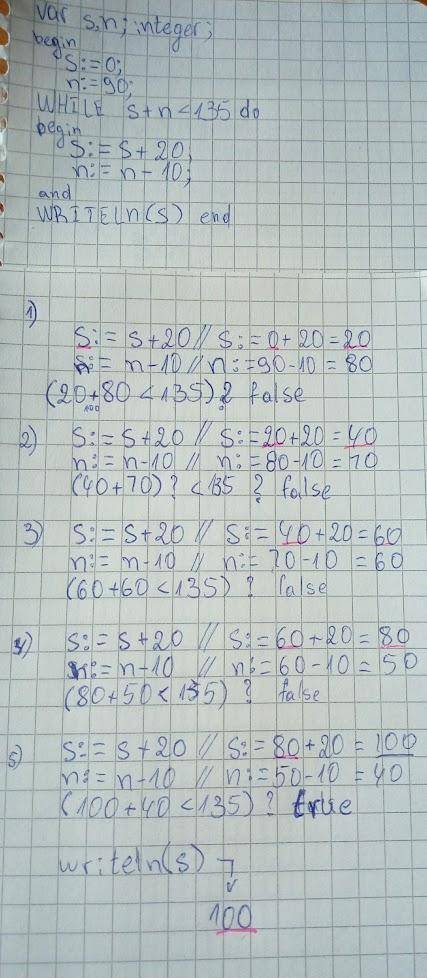 var s,n; integer;
begin
s:=0;
n:=90;
WHILE s+n<135 do
begin
s:= s+20;
n:= n-10;
and
WRITELn(s) end
1)
s:= s+20 // s:=0+20=20
n:= n-10 // n:=90-10=80
(20+80<135)? false
100
2) s:=s+20 // s:=20+20=40
n:=n-10 // n:=80-10=70
(40+70)? <135 ? false
3) s:=s+20 // s:=40+20=60
n:=n-10 // n:=70-10=60
(60+60<135) ? false
4) s:=s+20 // s:=60+20=80
n:=n-10 // n:=60-10=50
(80+50<135) ? false
5) s:=s+20 // s:=80+20=100
n:=n-10 // n:=50-10=40
(100+40<135)? true
writeln(s)
100